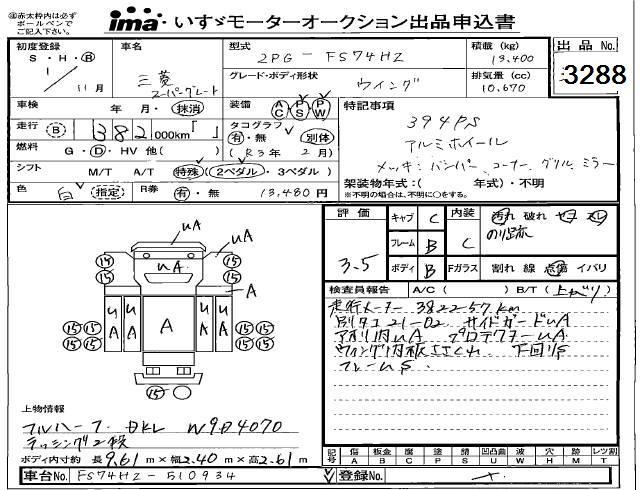 ㊟赤太枠内は必ず
ボールペンで
ご記入下さい。
ima・いすゞモーターオークション出品申込書
初度登録 S・H・Ⓡ 1/11月
車名 三菱 スーパーグレート
型式 2PG-FS74HZ
積載 (kg) 13,400
出品No. 3288
グレード・ボディ形状 ウイング
排気量 (cc) 10,670
車検 年 月・抹消
装備 AC PS PW
特記事項
走行 Ⓑ 1 382,000km「 」
タコグラフ 有・無 別体
394PS
アルミホイール
燃料 G・D・HV 他( )
(R3年2月)
メッキ:バンパー、コーナー、グリル、ミラー
シフト M/T A/T 特殊 (2ペダル・3ペダル)
架装物年式:( 年式)・不明
※不明の場合は、不明に○をする。
色 白 (指定) R券 有・無 13,480円
評価 3.5
キャブ C
フレーム B
ボディ B
内装 C
汚れ 破れ
Fガラス 割れ 線 点傷 イバリ
検査員報告 A/C( ) B/T(上がり)
走行メーター 382257km
別タコ21-02 サイドガードuA
アオリ内uA プロテクターuA
下回りS
フレームS
uA
uA
uA
A
uA
A
uA
⑮ ⑮
⑮ ⑮
⑮⑮ ⑮⑮
⑮⑮ ⑮⑮
⑮
上物情報
フルハーフ DKL W9D4070
ラッシング2段
ボディ内寸約 長9.61m×幅2.40m×高2.61m
記号 傷A 板金B 鈑C 凹U 波W 穴H
車台No. FS74HZ-510934
登録No.